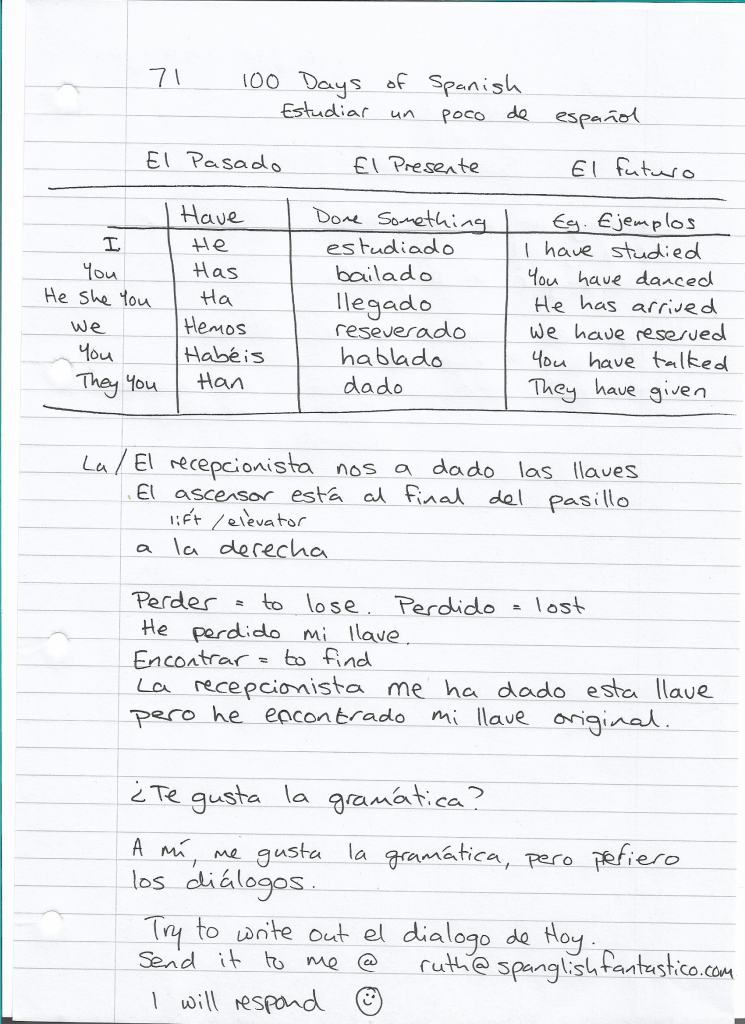 71 100 Days of Spanish
Estudiar un poco de español
El Pasado El Presente El futuro
Have Done Something Eg. Ejemplos
I He estudiado I have studied
You Has bailado You have danced
He She You Ha llegado He has arrived
We Hemos reseverado We have reserved
You Habéis hablado You have talked
They You Han dado They have given
La / El recepcionista nos a dado las llaves
El ascensor está al final del pasillo
lift / elevator
a la derecha
Perder = to lose. Perdido = lost
He perdido mi llave.
Encontrar = to find
La recepcionista me ha dado esta llave
pero he encontrado mi llave original.
¿Te gusta la gramática?
A mí, me gusta la gramática, pero pefiero
los diálogos.
Try to write out el dialogo de Hoy.
Send it to me @ ruth@spanglishfantastico.com
I will respond ☺